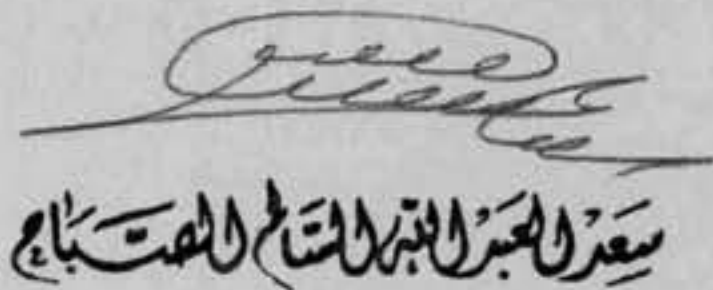 سعد العبد الله السالم الصباح